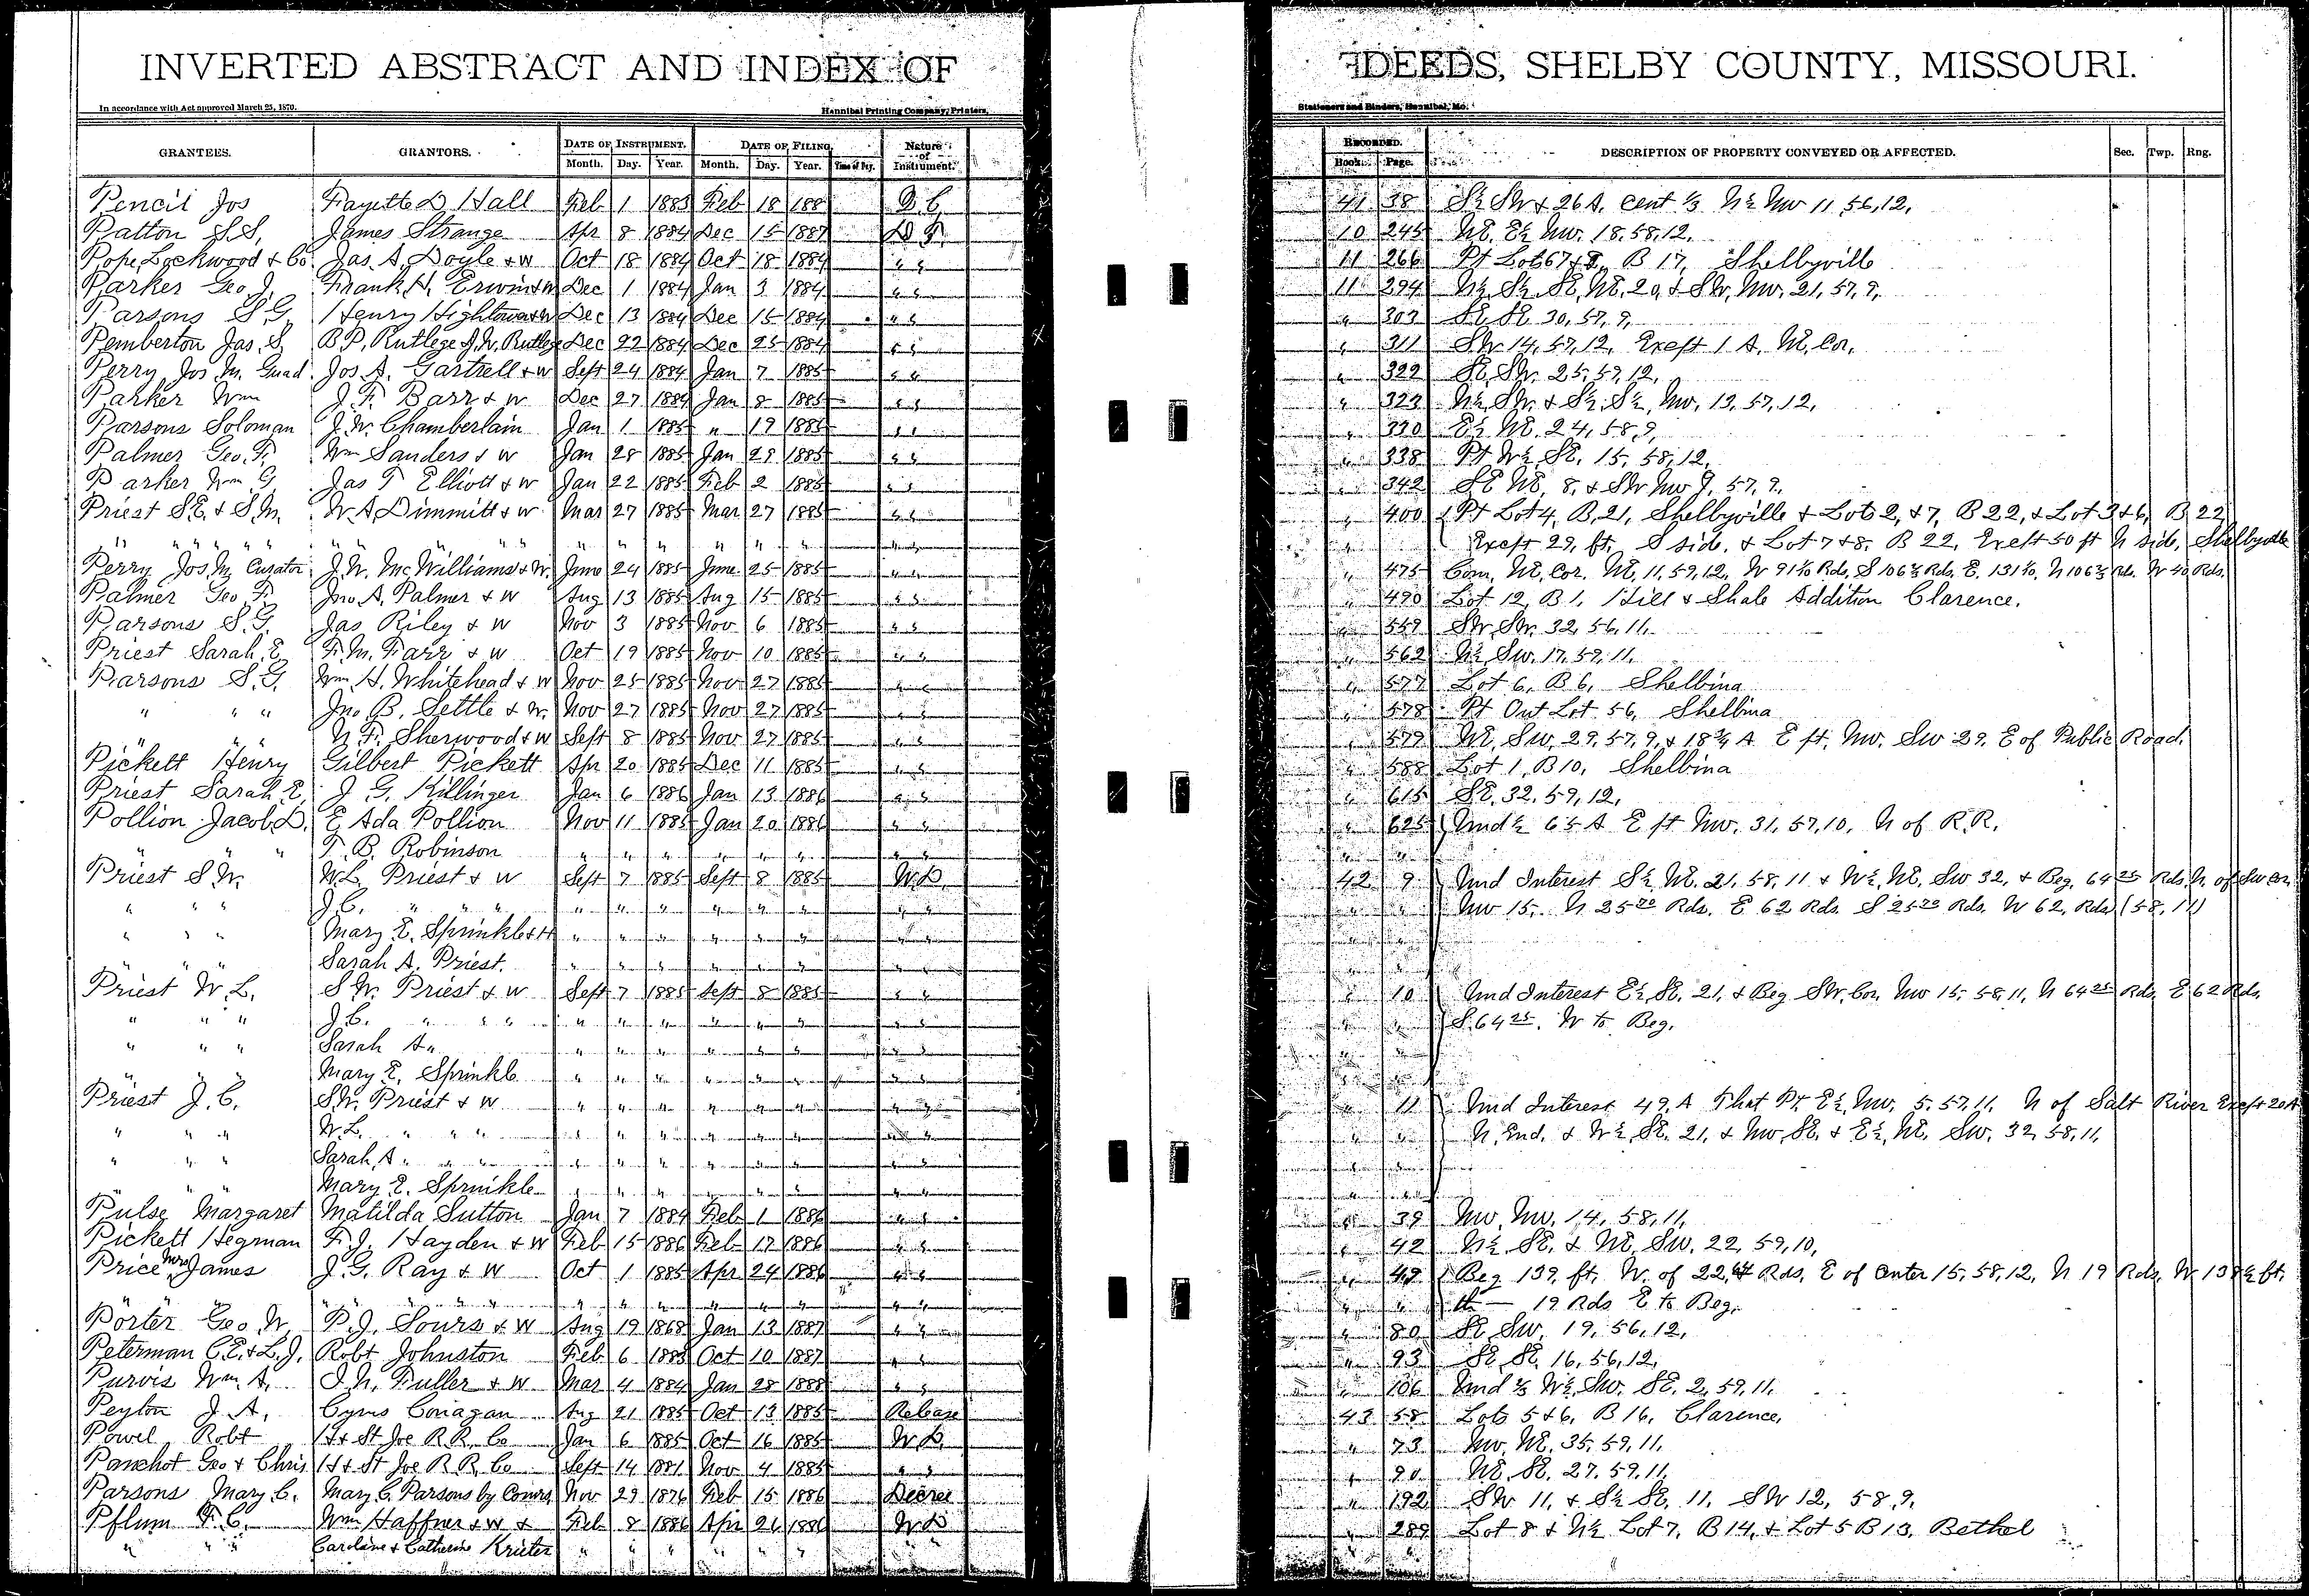 INVERTED ABSTRACT AND INDEX OF DEEDS, SHELBY COUNTY, MISSOURI.
In accordance with Act approved March 25, 1870. Hannibal Printing Company, Printers, Stationers and Binders, Hannibal, Mo.
GRANTEES. GRANTORS. DATE OF INSTRUMENT. DATE OF FILING. Nature of Instrument. RECORDED. DESCRIPTION OF PROPERTY CONVEYED OR AFFECTED. Sec. Twp. Rng.
Month. Day. Year. Month. Day. Year. Book. Page.
Pencil Jos Fayette D Hall Feb 1 1883 Feb 18 188 41 38 S½ SW & 26 A. Cent ⅓ N½ NW 11, 56, 12,
Patton S.S, James Strange Apr 8 1884 Dec 15 1887 10 245 NE. E½ NW. 18, 58, 12,
Pope, Lockwood & Co. Jas. A. Doyle & W Oct 18 1884 Oct 18 1884 " " 11 266 Pt Lot 6 7 & 8, B 17, Shelbyville
Parker Geo J. Frank H. Erwin & W Dec 1 1884 Jan 3 1884 " " 11 294 N½ S½ SE, NE. 20, & SW, NW. 21, 57, 9,
Parsons S.G. Henry Hightower & W Dec 13 1884 Dec 15 1884 " " " 303 SE SE 30, 57, 9,
Pemberton Jas. S B.P. Rutlege J.W. Rutlege Dec 22 1884 Dec 25 1884 " " " 311 SW 14, 57, 12, Except 1 A. NE. Cor.
Perry Jos M. Guad Jos A. Gartrell & W Sept 24 1884 Jan 7 1885 " " " 322 SE, SW. 25, 57, 12,
Parker Wm J. F. Barr & W Dec 27 1884 Jan 8 1885 " " " 323 N½, SW. & S½, S½, NW. 13, 57, 12,
Parsons Soloman J. W. Chamberlain Jan 1 1885 " 19 1885 " " " 330 E½ NE. 24, 58, 9,
Palmer Geo. F. Wm Sanders & W Jan 28 1885 Jan 29 1885 " " " 338 Pt W½, SE. 15, 58, 12,
Parker Wm G Jas T Elliott & W Jan 22 1885 Feb 2 1885 " " " 342 SE NE, 8, & SW NW 9, 57, 9,
Priest S.E. & S.M. W. A Dimmitt & W Mar 27 1885 Mar 27 1885 " " " 400 Pt Lot 4, B, 21, Shelbyville & Lots 2, & 7, B 22, & Lot 3 & 6, B 22
" " " " " " " " " " " " " " " " Except 29, ft. S side, & Lot 7 & 8, B 22, Except 50 ft N side, Shelbyville
Perry Jos. M, Curator J. W. McWilliams & W. June 24 1885 June 25 1885 " " " 475 Com, NE, Cor. NE, 11, 59, 12, W 91 Rds, S 106⅔ Rds, E. 131, N 106⅔ Rds. W 40 Rds.
Palmer Geo F. Jno A. Palmer & W Aug 13 1885 Aug 15 1885 " " " 490 Lot 12, B 1, Hill & Shale Addition Clarence.
Parsons S.G. Jas Riley & W Nov 3 1885 Nov 6 1885 " " " 559 SW, SW. 32, 56, 11,
Priest Sarah E F. M. Farr & W Oct 19 1885 Nov 10 1885 " " " 562 N½, SW. 17, 59, 11,
Parsons S.G. Wm H. Whitehead & W Nov 25 1885 Nov 27 1885 " " " 577 Lot 6, B 6, Shelbina
" " " Jno B. Settle & W. Nov 27 1885 Nov 27 1885 " " " 578 Pt Out Lot 56, Shelbina
" " " N. F. Sherwood & W Sept 8 1885 Nov 27 1885 " " " 579 NE, SW, 29, 57, 9, & 18¾ A E pt, NW. SW 29, E of Public Road.
Pickett Henry Gilbert Pickett Apr 20 1885 Dec 11 1885 " " " 588 Lot 1, B 10, Shelbina
Priest Sarah E, J. G. Killinger Jan 6 1886 Jan 13 1886 " " " 615 SE, 32, 59, 12,
Pollion Jacob D. E Ada Pollion Nov 11 1885 Jan 20 1886 " " " 625 Und ½ 65 A E pt NW. 31, 57, 10, N of R.R.
" " " T. B. Robinson " " " " " " " " " "
Priest S W. W. L. Priest & W Sept 7 1885 Sept 8 1885 W.D. 42 9 Und Interest S½ NE. 21, 58, 11 & W½, NE, SW 32, & Beg, 64 25 Rds, N. of SW Cor,
" " " J. C. " " " " " " " " " " " " " NW 15, N 25 20 Rds, E 62 Rds. S 25 20 Rds. W 62, Rds (58, 11)
" " " Mary E. Sprinkle & H " " " " " " " " " "
" " " Sarah A. Priest. " " " " " " " " " "
Priest W. L. S W. Priest & W Sept 7 1885 Sept 8 1885 " " " 10 Und Interest E½, SE. 21, & Beg SW. Cor, NW 15, 58, 11, N 64 25 Rds, E 62 Rds.
" " " J. C. " " " " " " " " " " " " " S. 64 25, W to Beg.
" " " Sarah A " " " " " " " " " " "
" " " Mary E, Sprinkle " " " " " " " " " "
Priest J. C. S. W. Priest & W " " " " " " " " " 11 Und Interest 49, A That Pt. E½, NW. 5, 57, 11, N of Salt River Except 20 A
" " " W. L. " " " " " " " " " " " " " N, End, & W½, SE. 21, & NW, SE. & E½, NE. SW. 32, 58, 11,
" " " Sarah, A " " " " " " " " " " " " "
" " " Mary E. Sprinkle " " " " " " " " " "
Pulse Margaret Matilda Sutton Jan 7 1884 Feb 1 1886 " " " 39 NW, NW, 14, 58, 11,
Pickett Hegman F. J. Hayden & W Feb 15 1886 Feb 17 1886 " " " 42 N½ SE. & NE, SW. 22, 59, 10,
Price Mrs James J. G. Ray & W Oct 1 1885 Apr 24 1886 " " " 49 Beg 139, ft. W. of 22, Rds, E of Center 15, 58, 12, N 19 Rds, W 139½ ft.
" " " " " " " " " " " " " " " " 19 Rds E to Beg.
Porter Geo. W, P. J. Sours & W Aug 19 1868 Jan 13 1887 " " " 80 SE SW, 19, 56, 12,
Peterman C.E. & L.J. Robt Johnston Feb 6 1885 Oct 10 1887 " " " 93 SE SE, 16, 56, 12,
Purvis Wm. A. J. N. Fuller & W Mar 4 1884 Jan 28 1888 " " " 106 Und ⅓ W½, SW. SE. 2, 59, 11,
Peyton J. A, Cyrus Conagan Aug 21 1885 Oct 13 1885 Release 43 58 Lots 5 & 6, B 16, Clarence,
Powel Robt H & St Joe R.R. Co Jan 6 1885 Oct 16 1885 W.D. " 73 NW, NE. 35, 59, 11,
Panchot Geo & Chris H & St Joe R.R. Co Sept 14 1881 Nov 4 1885 " " " 90 NE. SE. 27, 59, 11,
Parsons Mary C. Mary C. Parsons by Comrs Nov 29 1876 Feb 15 1886 Decree " 192 SW 11, & S½ SE. 11, SW 12, 58, 9,
Pflum F. C. Wm Haffner & W & Feb 8 1886 Apr 26 1886 W.D " 289 Lot 8 & N½ Lot 7, B 14, & Lot 5 B 13, Bethel
" " " Caroline & Catherine Krieter " " " " " "